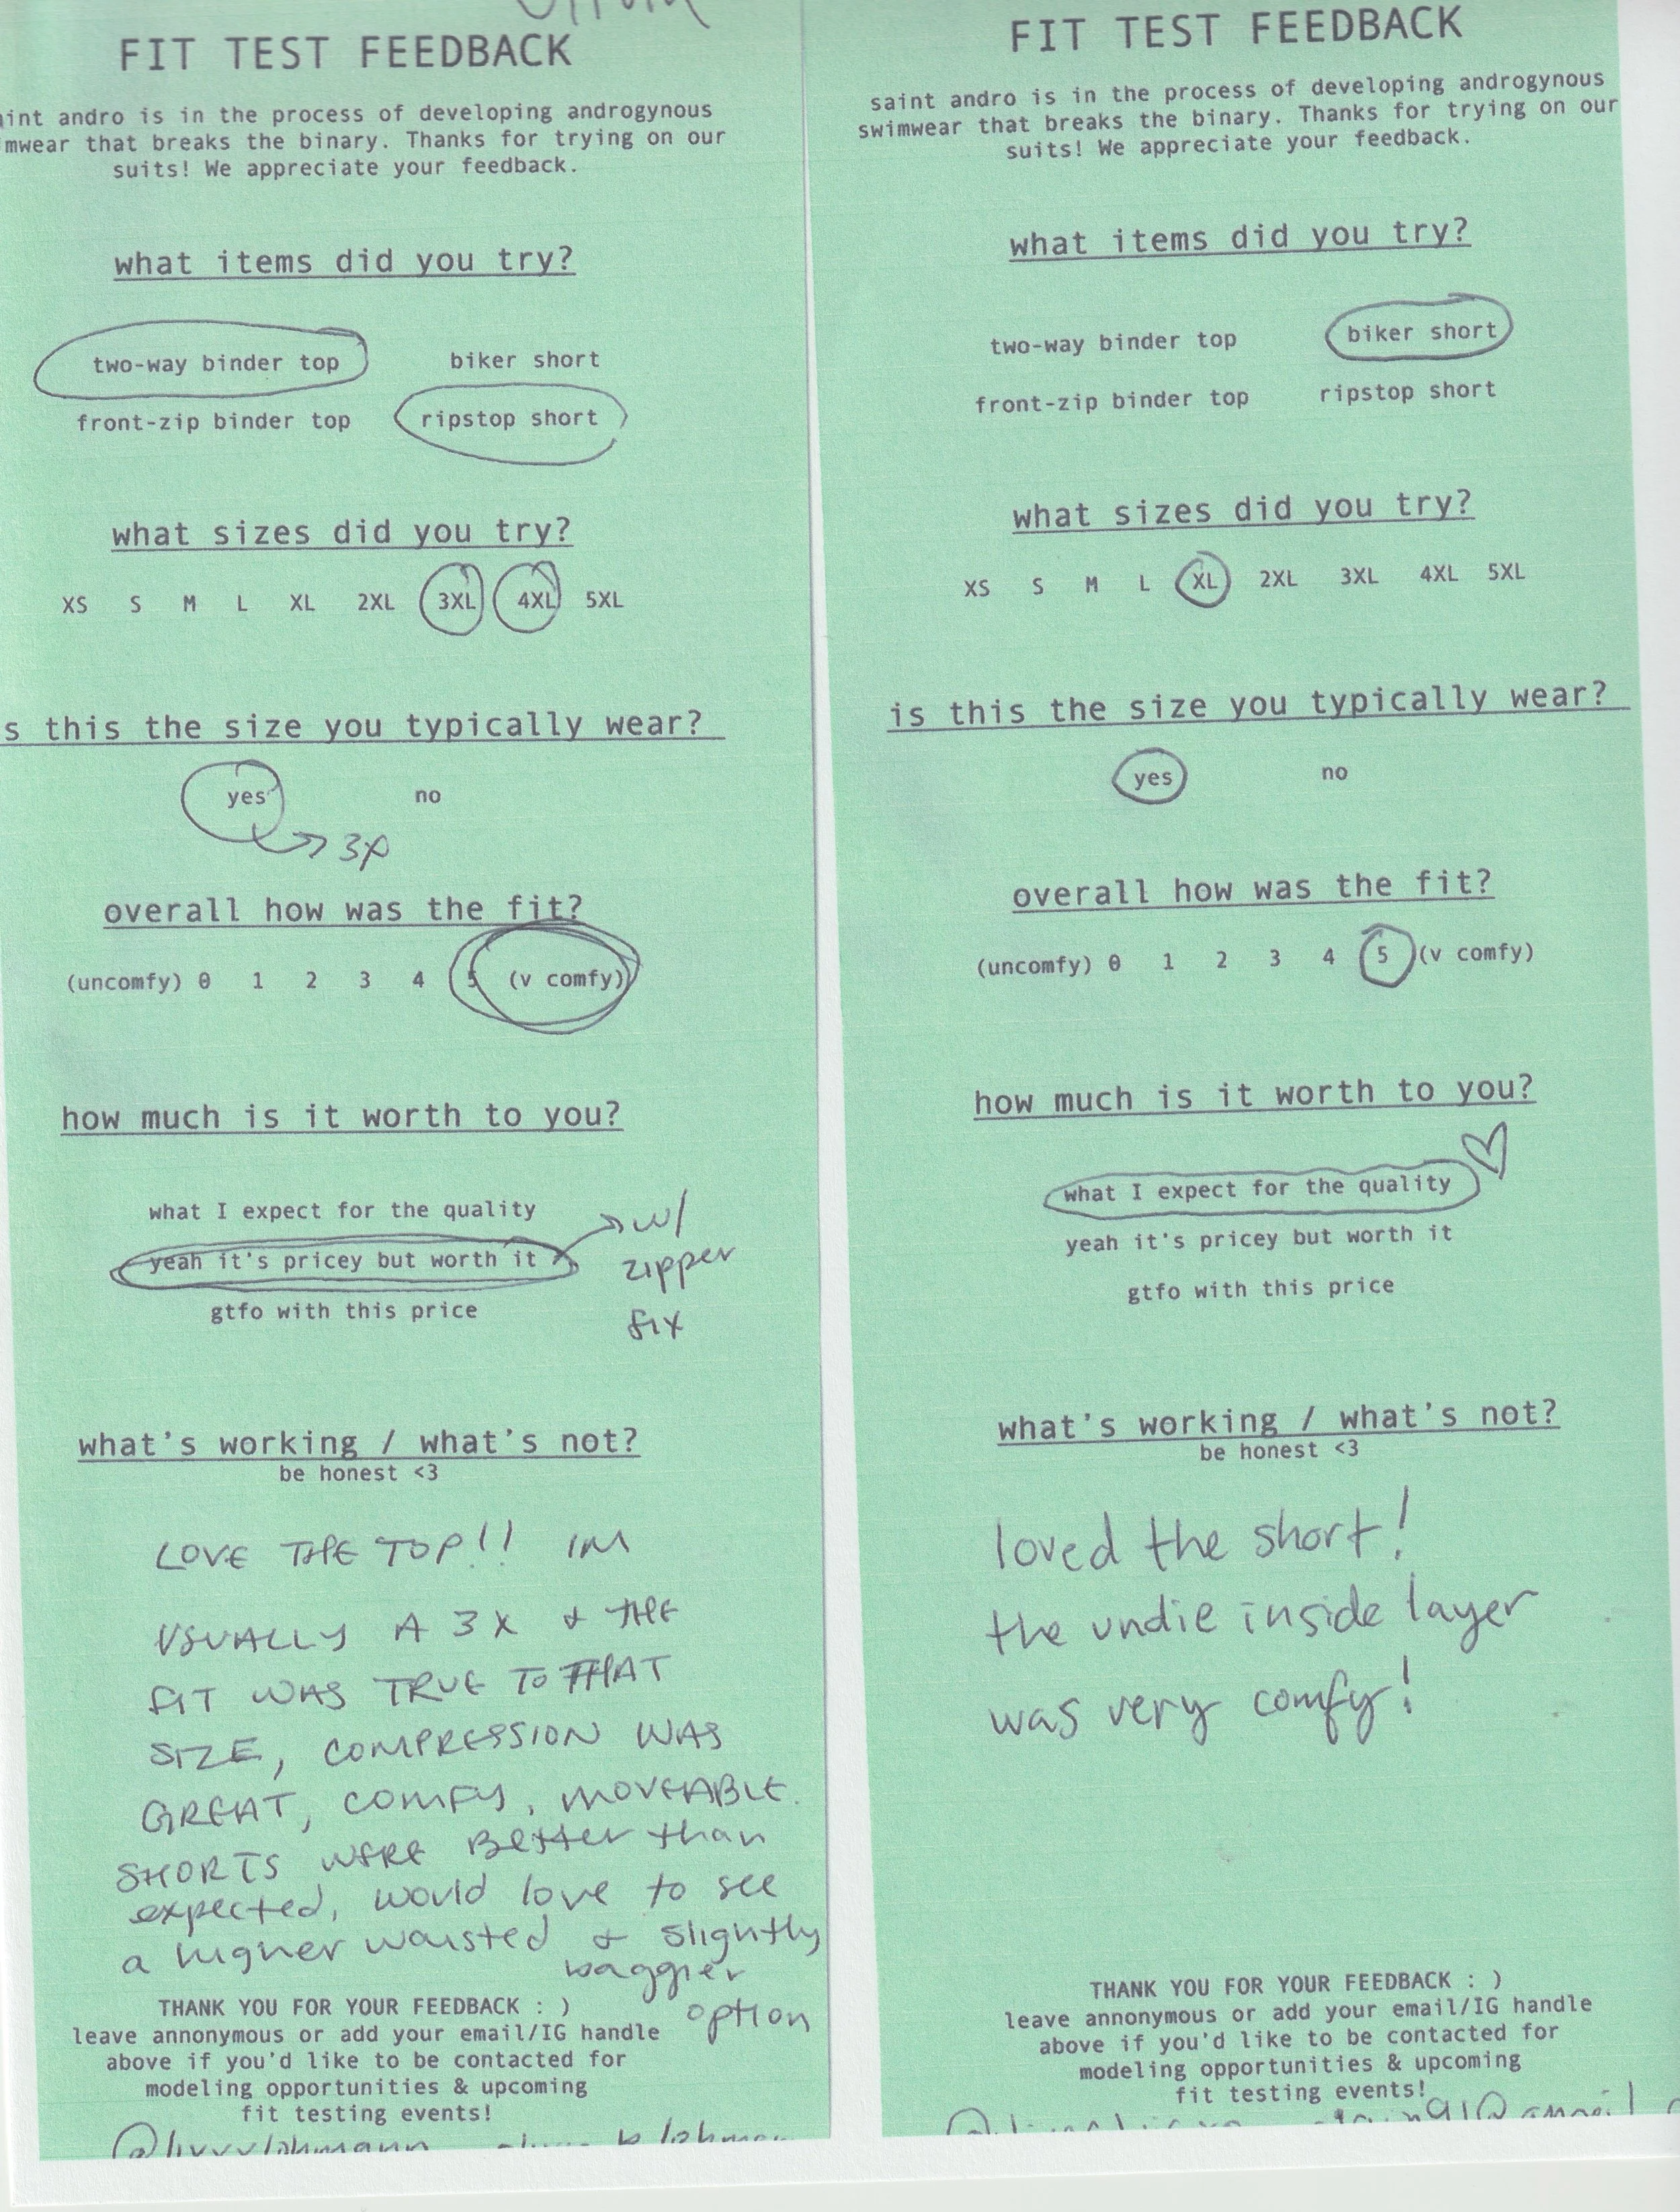 FIT TEST FEEDBACK
int andro is in the process of developing androgynous
mwear that breaks the binary. Thanks for trying on our
suits! We appreciate your feedback.
what items did you try?
two-way binder top biker short
front-zip binder top ripstop short
what sizes did you try?
XS S M L XL 2XL 3XL 4XL 5XL
s this the size you typically wear?
yes no
3X
overall how was the fit?
(uncomfy) 0 1 2 3 4 5 (v comfy)
how much is it worth to you?
what I expect for the quality
yeah it's pricey but worth it
gtfo with this price
w/
zipper
fix
what's working / what's not?
be honest <3
LOVE THE TOP!! IM
USUALLY A 3X & THE
FIT WAS TRUE TO THAT
SIZE, COMPRESSION WAS
GREAT, COMFY, MOVEABLE.
SHORTS WERE BETTER than
expected, would love to see
a higher waisted & slightly
baggier
option
THANK YOU FOR YOUR FEEDBACK : )
leave annonymous or add your email/IG handle
above if you'd like to be contacted for
modeling opportunities & upcoming
fit testing events!
FIT TEST FEEDBACK
saint andro is in the process of developing androgynous
swimwear that breaks the binary. Thanks for trying on our
suits! We appreciate your feedback.
what items did you try?
two-way binder top biker short
front-zip binder top ripstop short
what sizes did you try?
XS S M L XL 2XL 3XL 4XL 5XL
is this the size you typically wear?
yes no
overall how was the fit?
(uncomfy) 0 1 2 3 4 5 (v comfy)
how much is it worth to you?
what I expect for the quality
yeah it's pricey but worth it
gtfo with this price
what's working / what's not?
be honest <3
loved the short!
the undie inside layer
was very comfy!
THANK YOU FOR YOUR FEEDBACK : )
leave annonymous or add your email/IG handle
above if you'd like to be contacted for
modeling opportunities & upcoming
fit testing events!